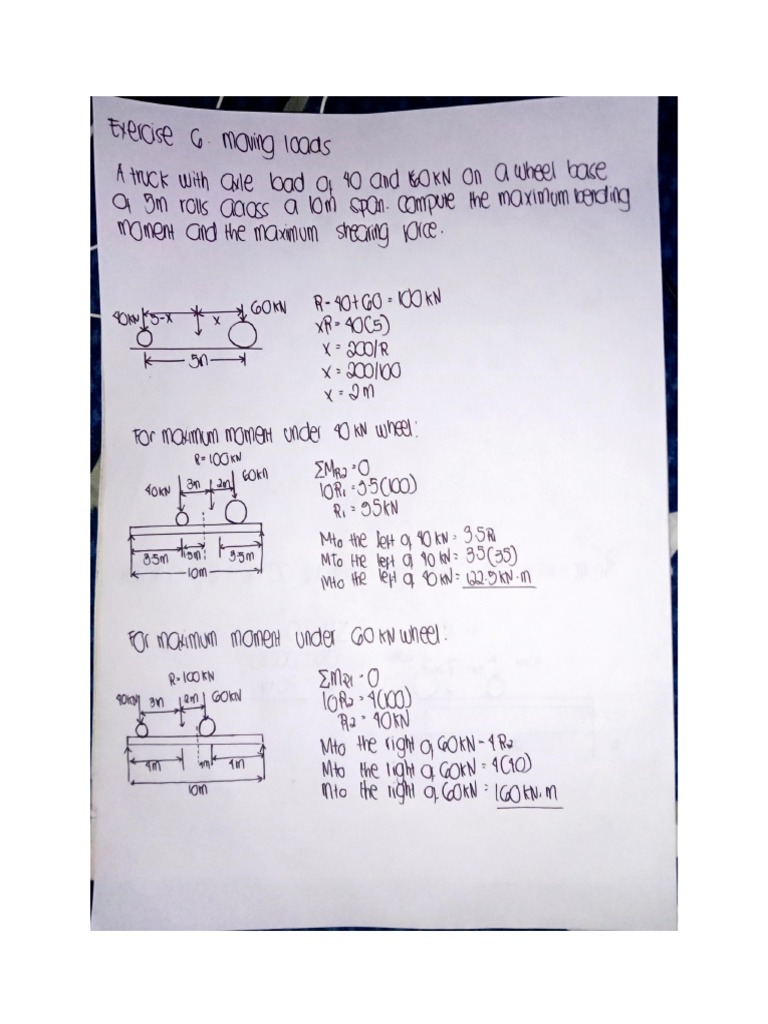 Exercise 6. Moving loads
A truck with axle load of 40 and 60KN on a wheel base
of 5m rolls across a 10m span. compute the maximum bending
moment and the maximum shearing force.
40KN 5-x x 60KN
5m
R = 40+60 = 100KN
xR = 40(5)
x = 200/R
x = 200/100
x = 2m
For maximum moment under 40 KN wheel:
R = 100KN
40KN 3m 2m 60KN
3.5m 1.5m 3.5m
10m
ΣMR2 = 0
10R1 = 3.5(100)
R1 = 35KN
M to the left of 40KN = 3.5R1
M To the left of 40KN = 3.5(35)
M to the left of 40KN = 122.5KN.m
For maximum moment under 60KN wheel:
R = 100KN
40KN 3m 2m 60KN
4m 1m 4m
10m
ΣMR1 = 0
10R2 = 4(100)
R2 = 40KN
M to the right of 60KN = 4R2
M to the right of 60KN = 4(40)
M to the right of 60KN = 160KN.m